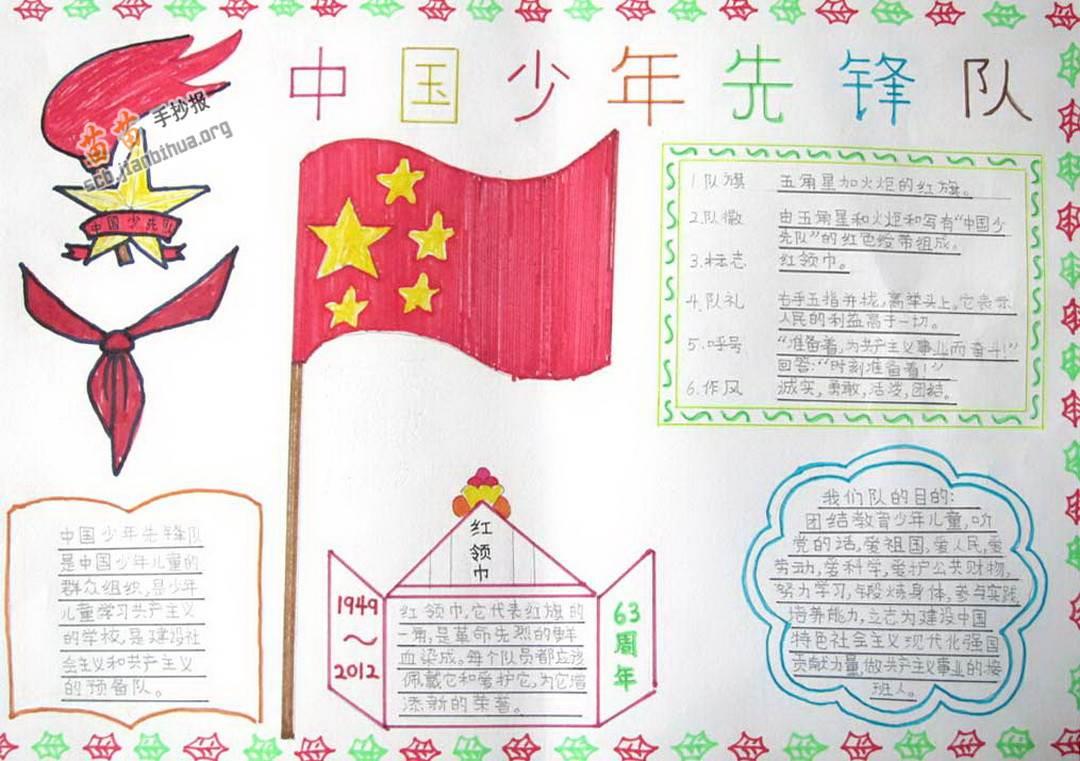 中国少年先锋队
苗苗手抄报
scb.jianbihua.org
中国少先队
1.队旗 五角星加火炬的红旗。
2.队徽 由五角星和火炬和写有“中国少
先队”的红色绶带组成。
3.标志 红领巾。
4.队礼 右手五指并拢,高举头上。它表示
人民的利益高于一切。
5.呼号 “准备着,为共产主义事业而奋斗!”
回答:“时刻准备着!”
6.作风 诚实,勇敢,活泼,团结。
中国少年先锋队
是中国少年儿童的
群众组织,是少年
儿童学习共产主义
的学校,是建设社
会主义和共产主义
的预备队。
1949
~
2012
红领巾
红领巾,它代表红旗的
一角,是革命先烈的鲜
血染成。每个队员都应该
佩戴它和爱护它,为它增
添新的荣誉。
63周年
我们队的目的:
团结教育少年儿童,听
党的话,爱祖国,爱人民,爱
劳动,爱科学,爱护公共财物,
努力学习,锻炼身体,参与实践,
培养能力,立志为建设中国
特色社会主义现代化强国
贡献力量,做共产主义事业的接
班人。